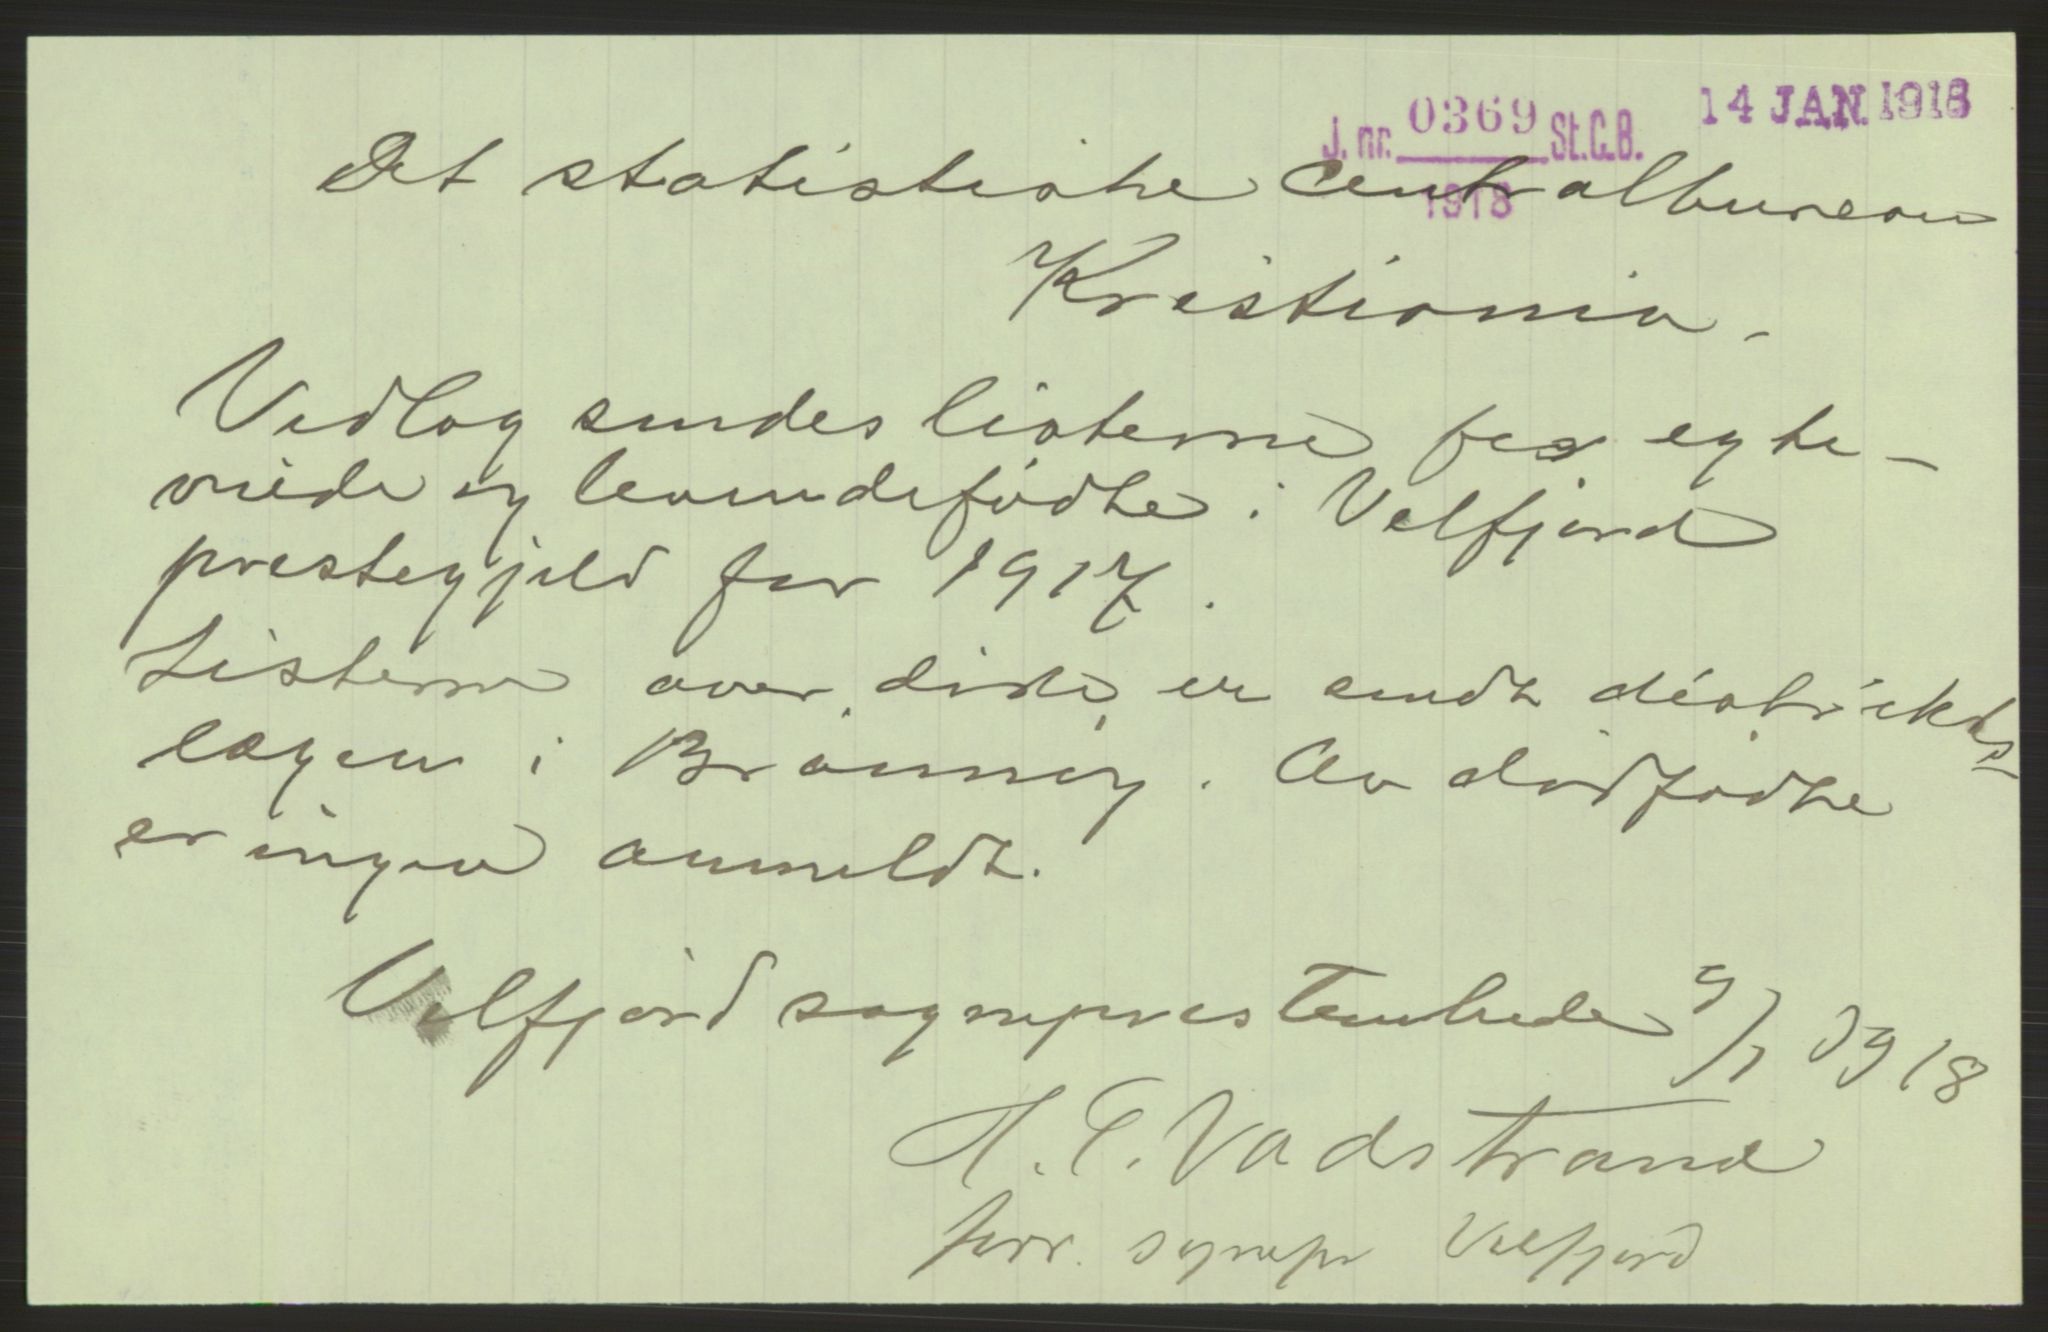 J. nr. 0369 St.C.B. 14 JAN. 1918
1918
Det statistiske Centralbureau
Kristiania.
Vedlag sendes listerne for egte-
viede og levendefødte i Velfjord
prestegjeld for 1917.
Listerne over døde er sendt distrikts-
lægen i Brønnøy. Av dødfødte
er ingen anmeldt.
Velfjord sogneprestembede 9/1 1918
H. E. Vadstrand
forr. sognepr Velfjord